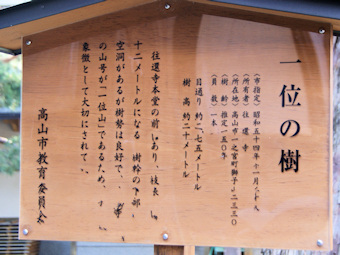 一位の樹
(市指定) 昭和五十四年十一月
(所有者) 往還寺
(所在地) 高山市一之宮町
(樹齢) 推定一五〇年
(員数) 一本
目通り 約二、七五メートル
樹高 約二十メートル
往還寺本堂の前にあり、枝表
十二メートルになる 樹幹の下部に
空洞があるが樹勢は良好で、
の山号が「一位山」であるため、
象徴として大切にされて
高山市教育委員会